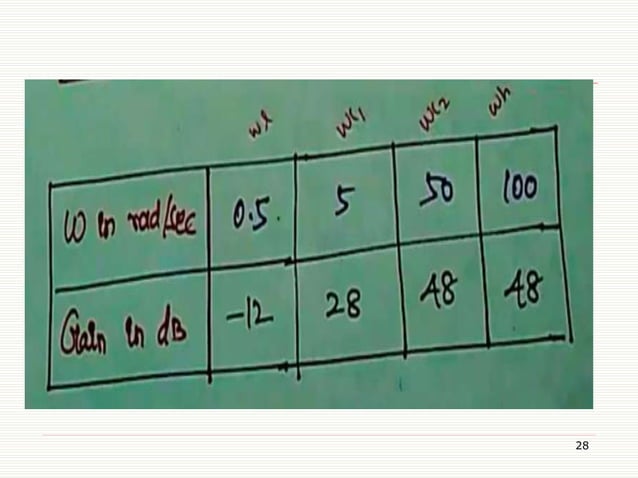 wl wc1 wc2 wh
W in rad/sec 0.5. 5 50 100
Gain in dB -12 28 48 48
28